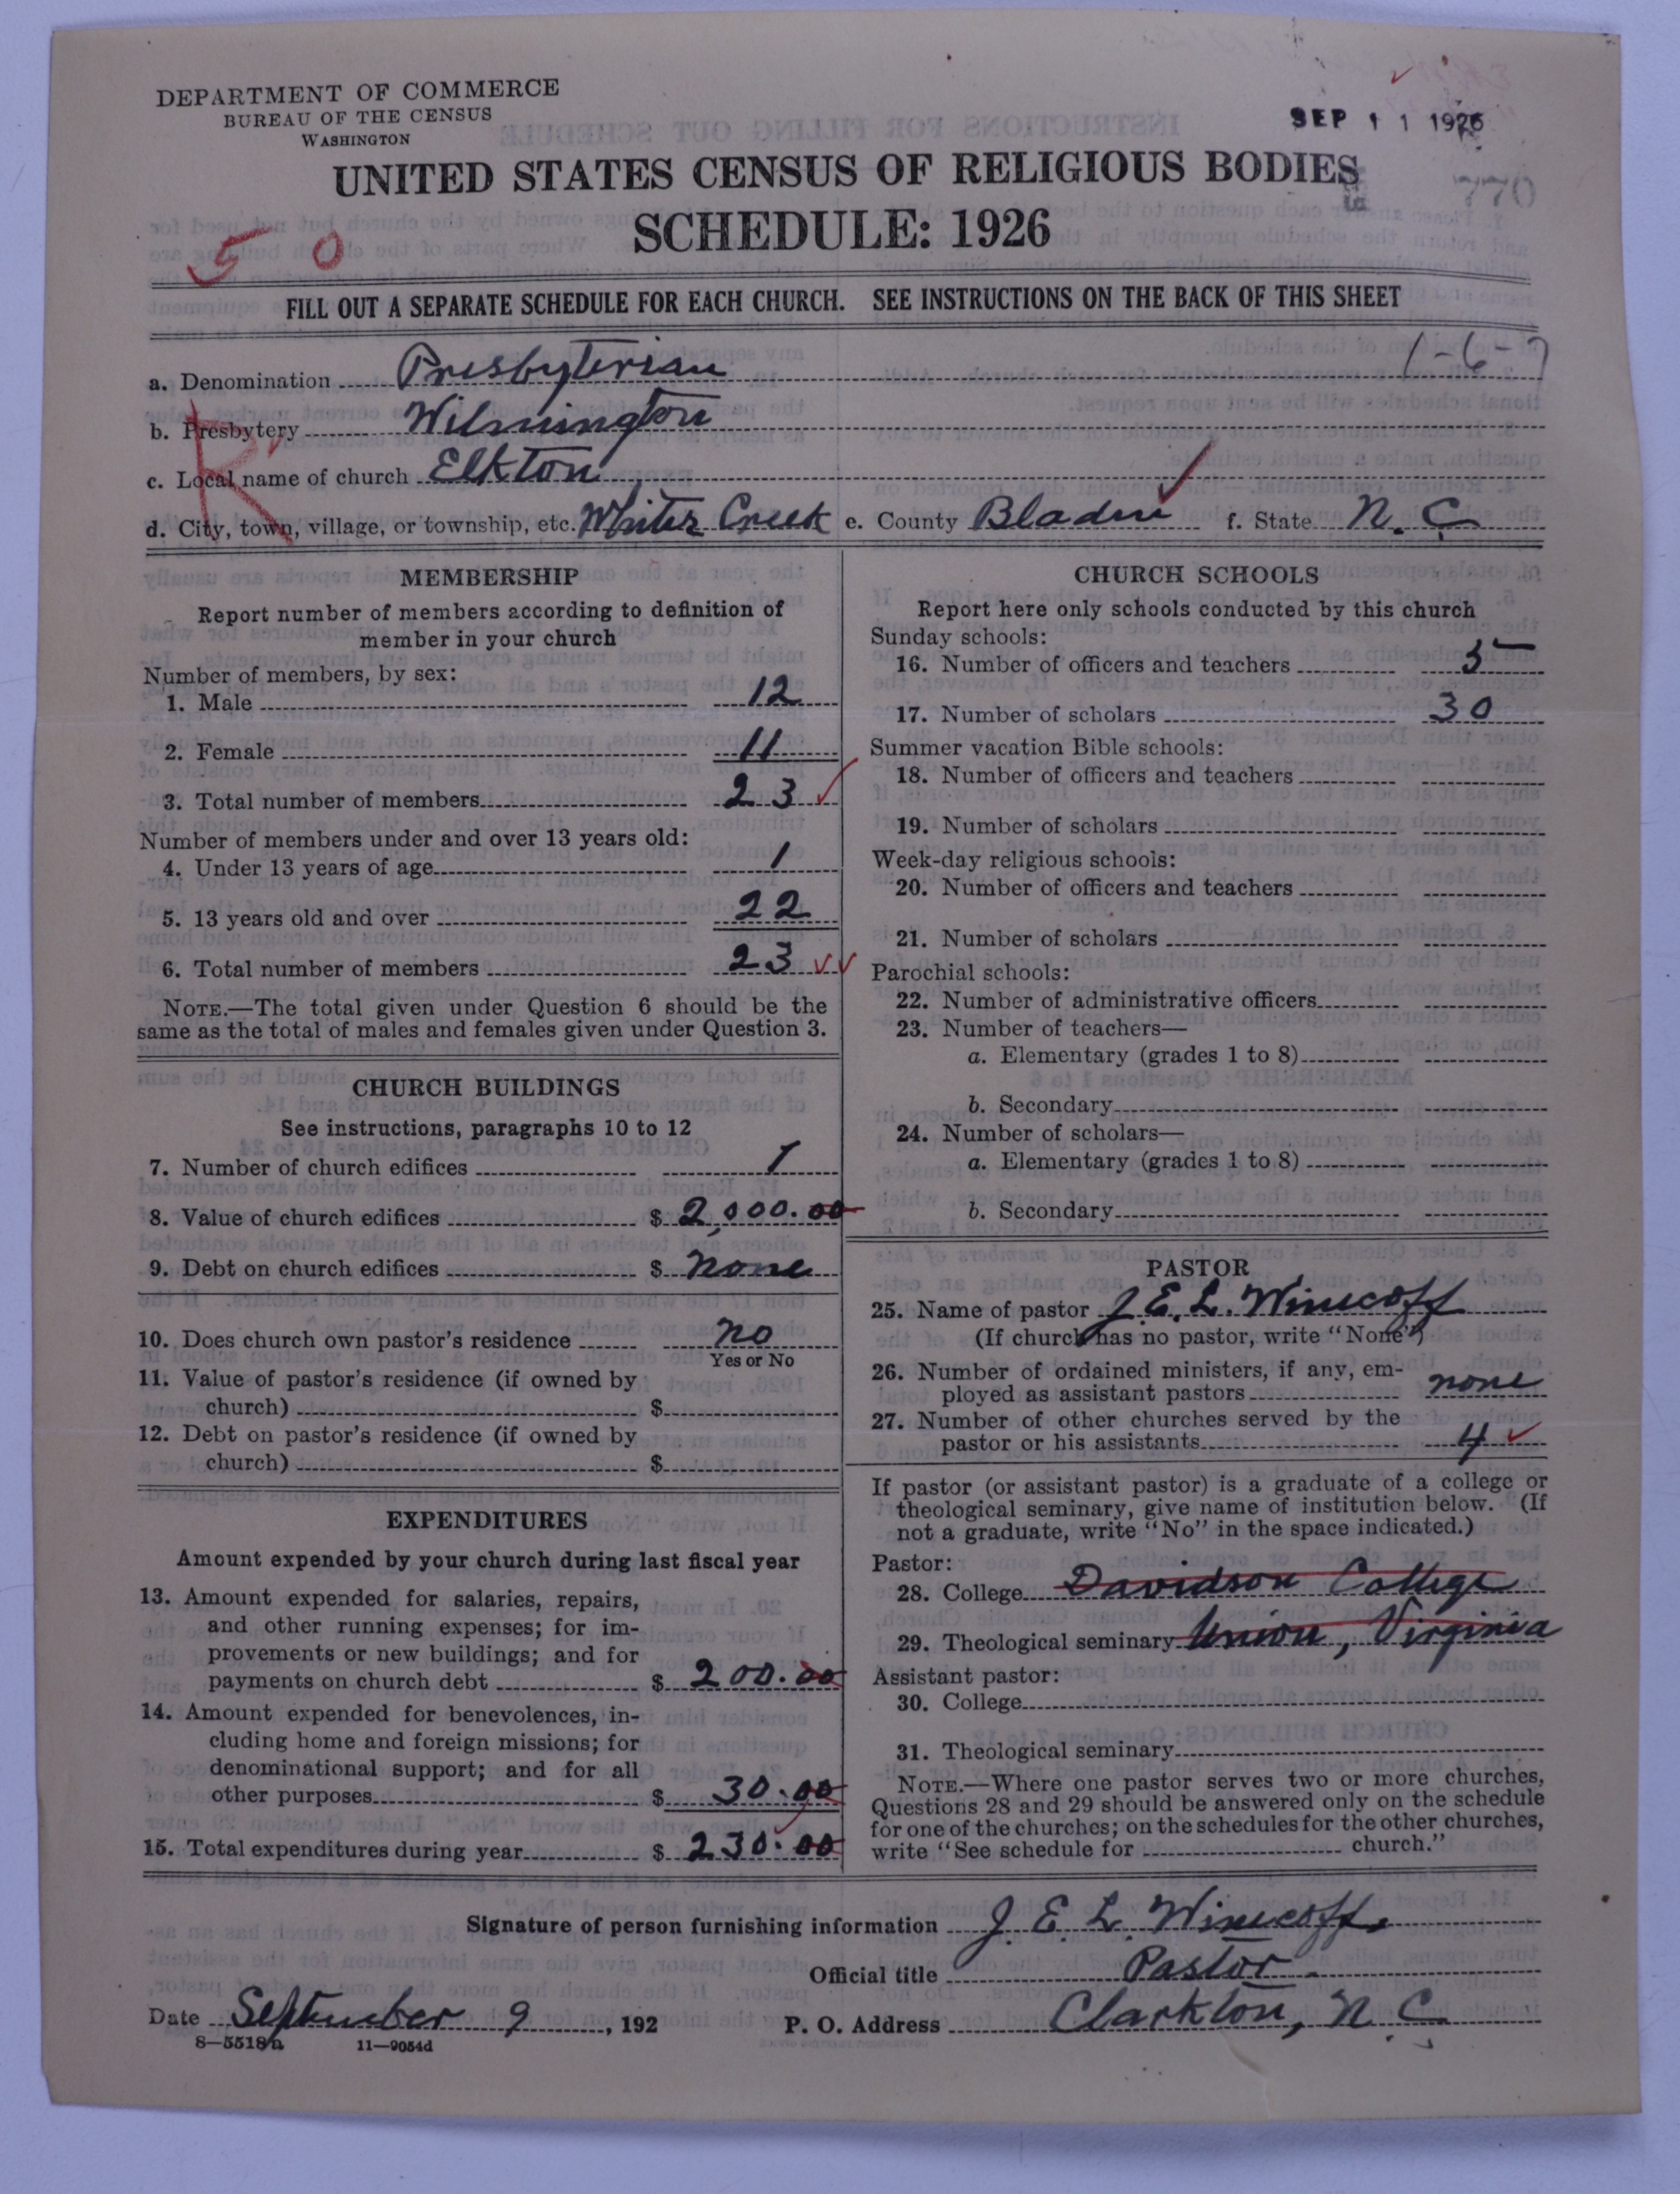 DEPARTMENT OF COMMERCE
BUREAU OF THE CENSUS
WASHINGTON
SEP 11 1926
UNITED STATES CENSUS OF RELIGIOUS BODIES
770
SCHEDULE: 1926
50
FILL OUT A SEPARATE SCHEDULE FOR EACH CHURCH. SEE INSTRUCTIONS ON THE BACK OF THIS SHEET
1-6-7
a. Denomination Presbyterian
b. Presbytery Wilmington
R
c. Local name of church Elkton
d. City, town, village, or township, etc. Whites Creek e. County Bladen f. State N. C.
MEMBERSHIP
Report number of members according to definition of
member in your church
Number of members, by sex:
1. Male 12
2. Female 11
3. Total number of members 23
Number of members under and over 13 years old:
4. Under 13 years of age 1
5. 13 years old and over 22
6. Total number of members 23
NOTE.—The total given under Question 6 should be the
same as the total of males and females given under Question 3.
CHURCH BUILDINGS
See instructions, paragraphs 10 to 12
7. Number of church edifices 1
8. Value of church edifices $ 2,000.00
9. Debt on church edifices $ none
10. Does church own pastor's residence no
Yes or No
11. Value of pastor's residence (if owned by
church) $
12. Debt on pastor's residence (if owned by
church) $
EXPENDITURES
Amount expended by your church during last fiscal year
13. Amount expended for salaries, repairs,
and other running expenses; for im-
provements or new buildings; and for
payments on church debt $ 200.00
14. Amount expended for benevolences, in-
cluding home and foreign missions; for
denominational support; and for all
other purposes $ 30.00
15. Total expenditures during year $ 230.00
CHURCH SCHOOLS
Report here only schools conducted by this church
Sunday schools:
16. Number of officers and teachers 5
17. Number of scholars 30
Summer vacation Bible schools:
18. Number of officers and teachers
19. Number of scholars
Week-day religious schools:
20. Number of officers and teachers
21. Number of scholars
Parochial schools:
22. Number of administrative officers
23. Number of teachers—
a. Elementary (grades 1 to 8)
b. Secondary
24. Number of scholars—
a. Elementary (grades 1 to 8)
b. Secondary
PASTOR
25. Name of pastor J. E. L. Winecoff
(If church has no pastor, write "None")
26. Number of ordained ministers, if any, em-
ployed as assistant pastors none
27. Number of other churches served by the
pastor or his assistants 4
If pastor (or assistant pastor) is a graduate of a college or
theological seminary, give name of institution below. (If
not a graduate, write "No" in the space indicated.)
Pastor:
28. College Davidson College
29. Theological seminary Union, Virginia
Assistant pastor:
30. College
31. Theological seminary
NOTE.—Where one pastor serves two or more churches,
Questions 28 and 29 should be answered only on the schedule
for one of the churches; on the schedules for the other churches,
write "See schedule for church."
Signature of person furnishing information J. E. L. Winecoff.
Official title Pastor
Date September 9, 192 P. O. Address Clarkton, N. C.
8—5518n 11—9054d